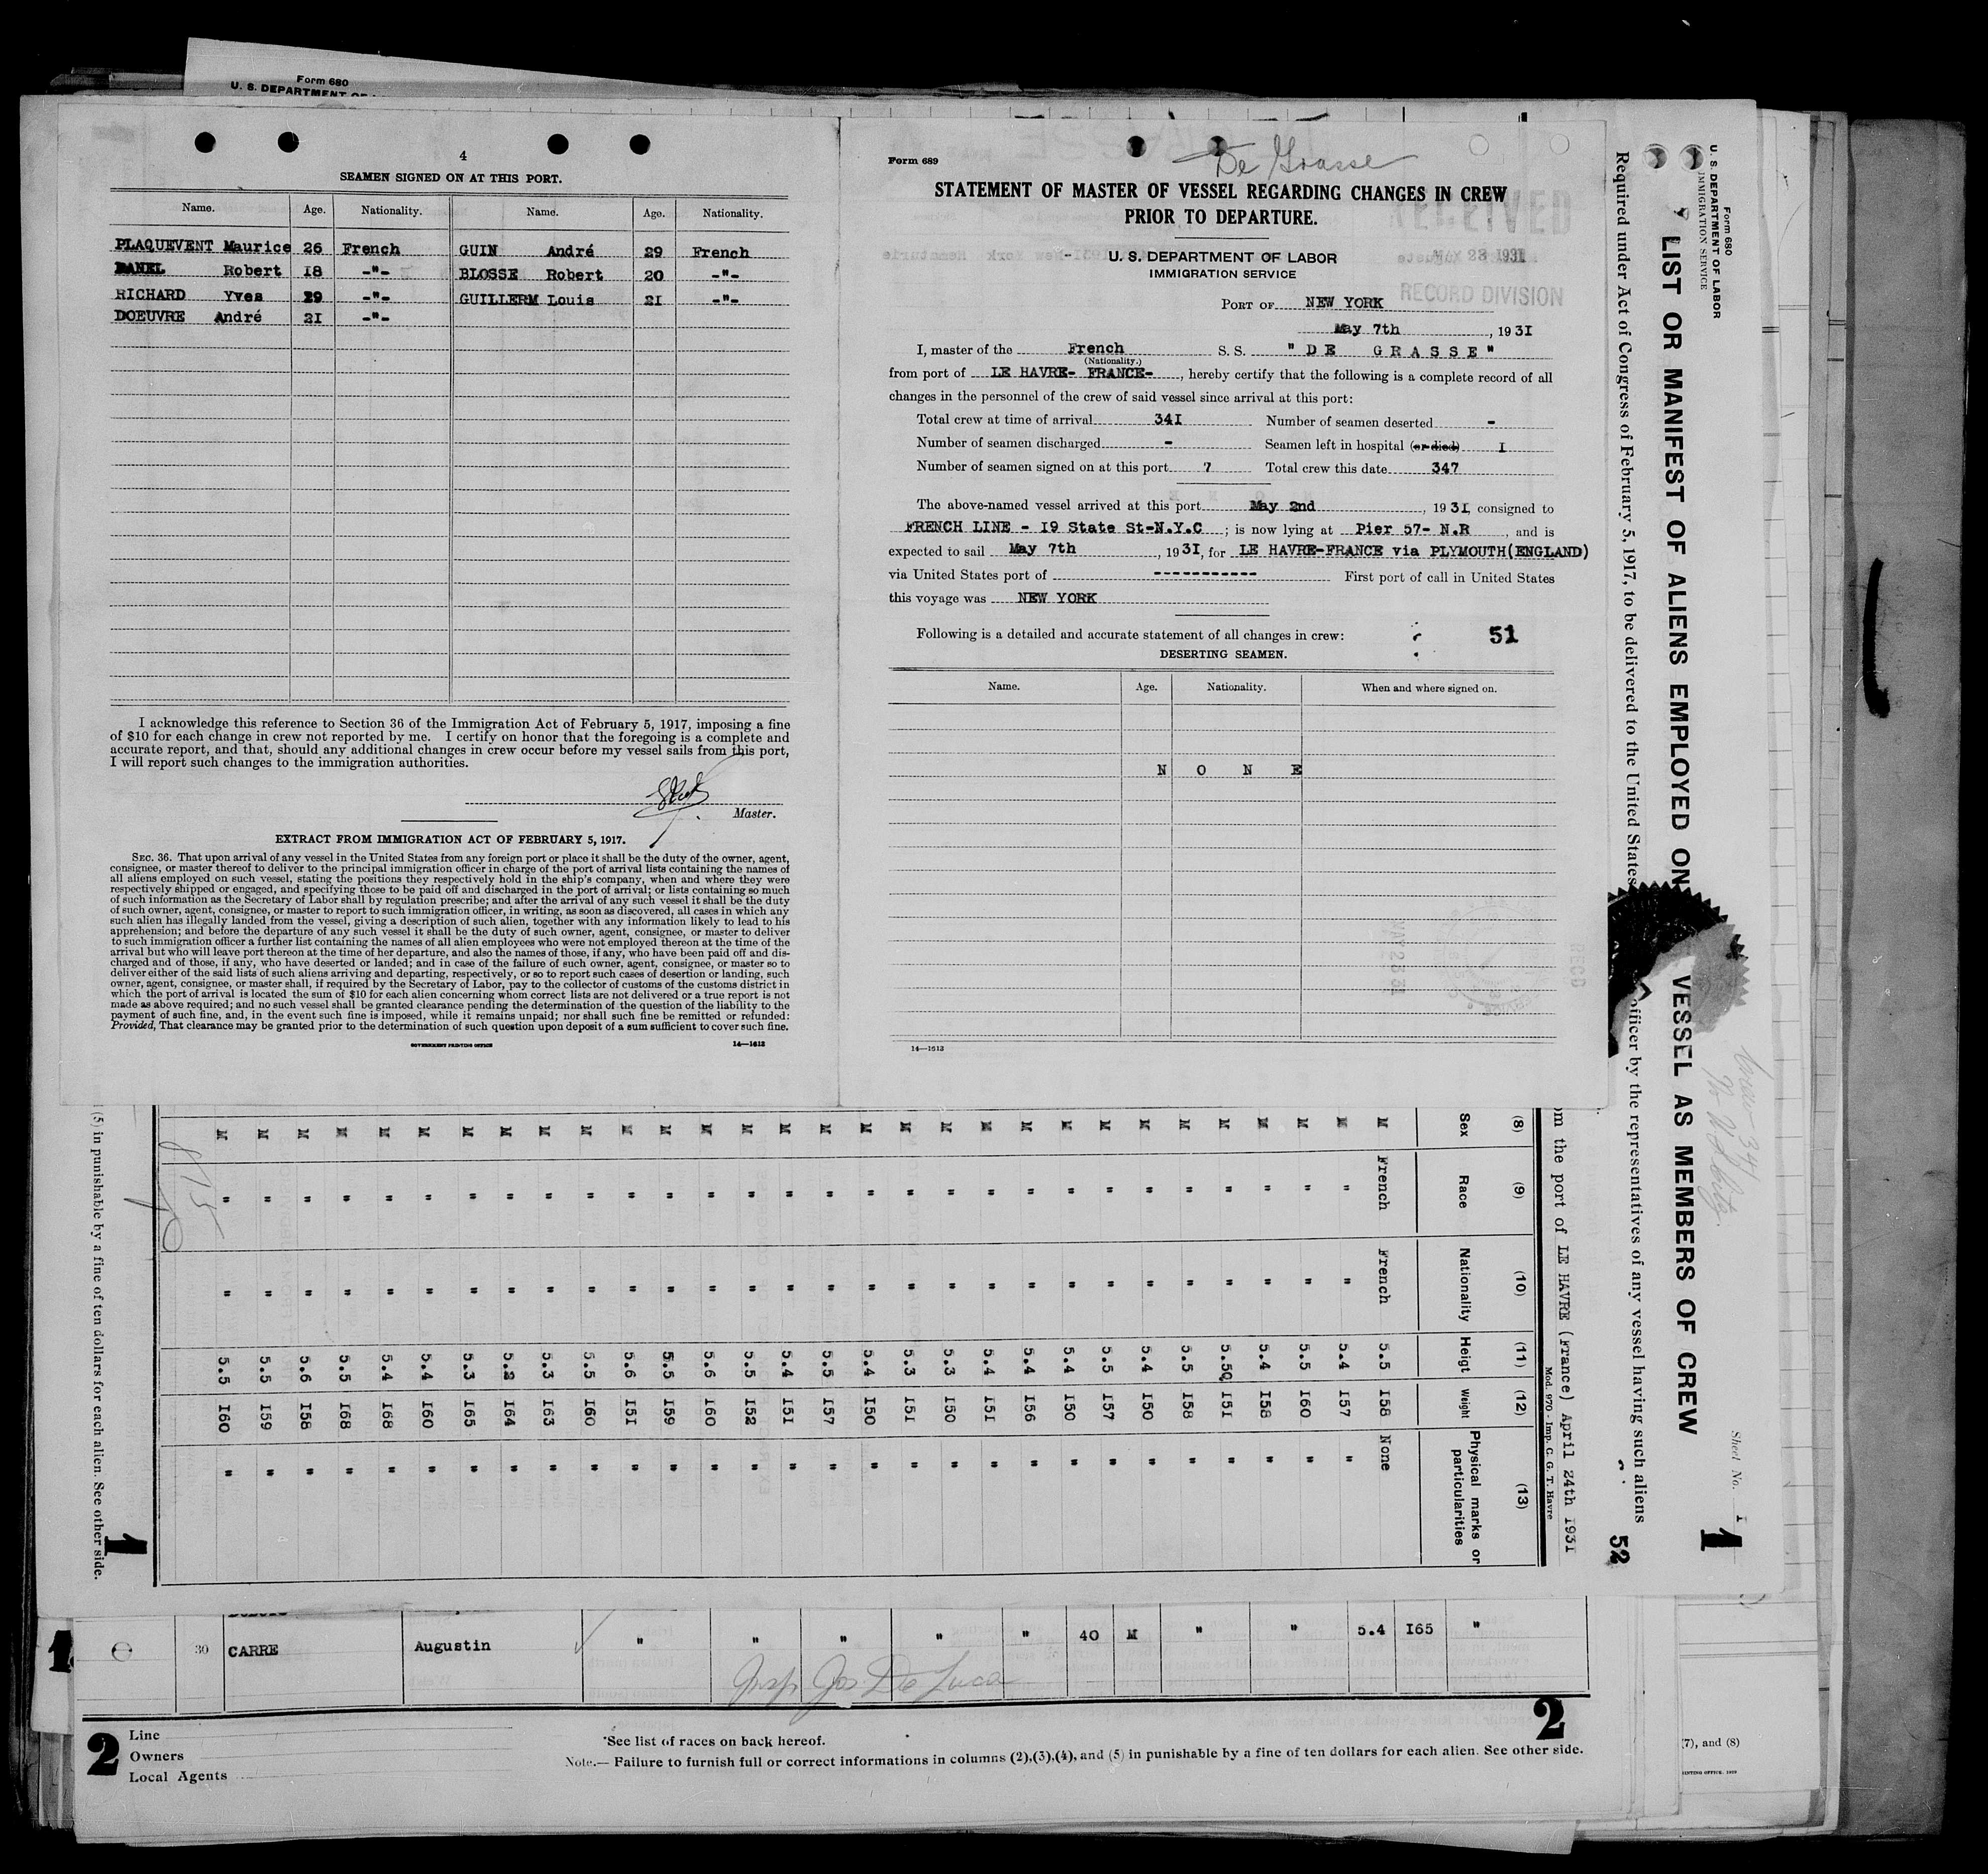 Form 680
U. S. DEPARTMENT OF
4
SEAMEN SIGNED ON AT THIS PORT.
Name. Age. Nationality. Name. Age. Nationality.
PLAQUEVENT Maurice 26 French GUIN André 29 French
DANEL Robert 18 -"- BLOSSE Robert 20 -"-
RICHARD Yves 29 -"- GUILLERM Louis 21 -"-
DOEUVRE André 21 -"-
I acknowledge this reference to Section 36 of the Immigration Act of February 5, 1917, imposing a fine
of $10 for each change in crew not reported by me. I certify on honor that the foregoing is a complete and
accurate report, and that, should any additional changes in crew occur before my vessel sails from this port,
I will report such changes to the immigration authorities.
Master.
EXTRACT FROM IMMIGRATION ACT OF FEBRUARY 5, 1917.
SEC. 36. That upon arrival of any vessel in the United States from any foreign port or place it shall be the duty of the owner, agent,
consignee, or master thereof to deliver to the principal immigration officer in charge of the port of arrival lists containing the names of
all aliens employed on such vessel, stating the positions they respectively hold in the ship's company, when and where they were
respectively shipped or engaged, and specifying those to be paid off and discharged in the port of arrival; or lists containing so much
of such information as the Secretary of Labor shall by regulation prescribe; and after the arrival of any such vessel it shall be the duty
of such owner, agent, consignee, or master to report to such immigration officer, in writing, as soon as discovered, all cases in which any
such alien has illegally landed from the vessel, giving a description of such alien, together with any information likely to lead to his
apprehension; and before the departure of any such vessel it shall be the duty of such owner, agent, consignee, or master to deliver
to such immigration officer a further list containing the names of all alien employees who were not employed thereon at the time of the
arrival but who will leave port thereon at the time of her departure, and also the names of those, if any, who have been paid off and dis-
charged and of those, if any, who have deserted or landed; and in case of the failure of such owner, agent, consignee, or master so to
deliver either of the said lists of such aliens arriving and departing, respectively, or so to report such cases of desertion or landing, such
owner, agent, consignee, or master shall, if required by the Secretary of Labor, pay to the collector of customs of the customs district in
which the port of arrival is located the sum of $10 for each alien concerning whom correct lists are not delivered or a true report is not
made as above required; and no such vessel shall be granted clearance pending the determination of the question of the liability to the
payment of such fine, and, in the event such fine is imposed, while it remains unpaid; nor shall such fine be remitted or refunded:
Provided, That clearance may be granted prior to the determination of such question upon deposit of a sum sufficient to cover such fine.
GOVERNMENT PRINTING OFFICE 14—1613
Form 689
De Grasse
STATEMENT OF MASTER OF VESSEL REGARDING CHANGES IN CREW
PRIOR TO DEPARTURE.
RECEIVED
MAY 23 1931
RECORD DIVISION
U. S. DEPARTMENT OF LABOR
IMMIGRATION SERVICE
PORT OF NEW YORK
May 7th, 1931
I, master of the French S. S. " D E G R A S S E "
(Nationality.)
from port of LE HAVRE- FRANCE-, hereby certify that the following is a complete record of all
changes in the personnel of the crew of said vessel since arrival at this port:
Total crew at time of arrival 341 Number of seamen deserted -
Number of seamen discharged - Seamen left in hospital (or died) 1
Number of seamen signed on at this port 7 Total crew this date 347
The above-named vessel arrived at this port May 2nd, 1931, consigned to
FRENCH LINE - 19 State St-N.Y.C; is now lying at Pier 57- N.R, and is
expected to sail May 7th, 1931, for LE HAVRE-FRANCE via PLYMOUTH(ENGLAND)
via United States port of ----------- First port of call in United States
this voyage was NEW YORK
Following is a detailed and accurate statement of all changes in crew: 51
DESERTING SEAMEN.
Name. Age. Nationality. When and where signed on.
N O N E
14—1613
Form 680
U. S. DEPARTMENT OF LABOR
IMMIGRATION SERVICE
Sheet No. 1
1
LIST OR MANIFEST OF ALIENS EMPLOYED ON VESSEL AS MEMBERS OF CREW
Required under Act of Congress of February 5, 1917, to be delivered to the United States officer by the representatives of any vessel having such aliens
52
om the port of LE HAVRE (France) April 24th 1931
Mod. 970 - Imp. C. G. T. Havre
(8) (9) (10) (11) (12) (13)
Sex Race Nationality Heigt Weight Physical marks or particularities
M French French 5.5 158 None
M " " 5.4 157 "
M " " 5.5 160 "
M " " 5.4 158 "
M " " 5.50 151 "
M " " 5.5 158 "
M " " 5.4 150 "
M " " 5.5 157 "
M " " 5.4 150 "
M " " 5.4 156 "
M " " 5.4 151 "
M " " 5.3 150 "
M " " 5.3 151 "
M " " 5.4 150 "
M " " 5.5 157 "
M " " 5.4 151 "
M " " 5.5 152 "
M " " 5.6 160 "
M " " 5.5 159 "
M " " 5.6 151 "
M " " 5.5 160 "
M " " 5.3 163 "
M " " 5.2 164 "
M " " 5.3 165 "
M " " 5.4 160 "
M " " 5.4 168 "
M " " 5.5 168 "
M " " 5.6 158 "
M " " 5.5 159 "
M " " 5.5 160 "
(5) in punishable by a fine of ten dollars for each alien. See other side.
1
1
30 CARRE Augustin " " " " " 40 M " " 5.4 165 "
Insp Jos De Luca
2
Line
Owners
Local Agents
*See list of races on back hereof.
Note.— Failure to furnish full or correct informations in columns (2),(3),(4), and (5) in punishable by a fine of ten dollars for each alien. See other side.
2
(7), and (8)